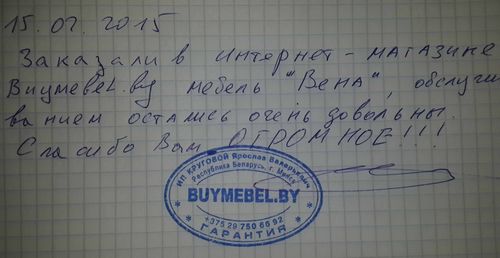 15.07.2015
Заказали в интернет-магазине
Buymebel.by мебель "Вена", обслужи
ванием остались очень довольны.
Спасибо Вам ОГРОМНОЕ!!!
ИП КРУГОВОЙ Ярослав Валерьевич
Республика Беларусь, г. Минск
BUYMEBEL.BY
+375 29 750 66 92
ГАРАНТИЯ